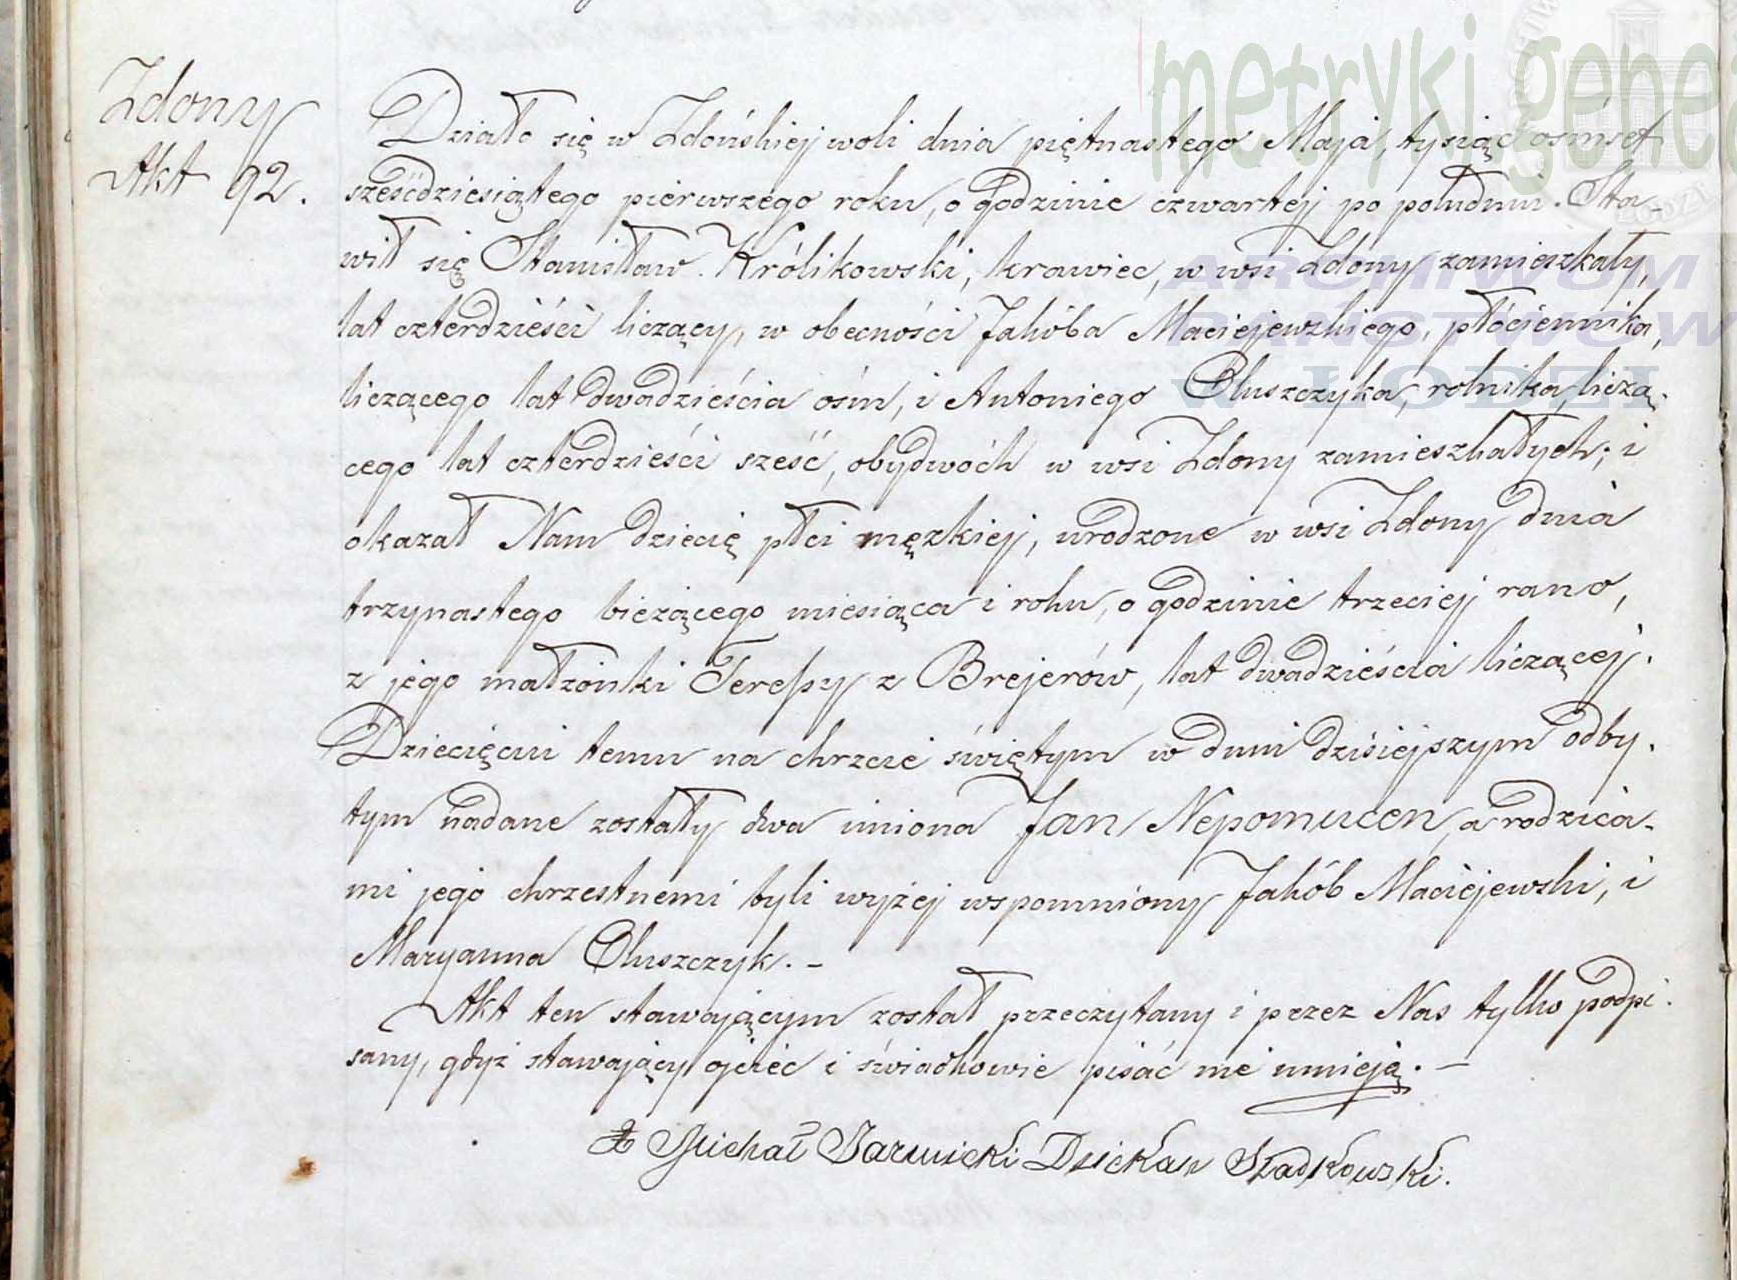 metryki.genea
ARCHIWUM
PAŃSTWOW
W ŁODZI
Zdony
Akt 92.
Działo się w Zduńskiej woli dnia piętnastego Maja, tysiąc ośmset
sześćdziesiątego pierwszego roku, o godzinie czwartej po południu. Sta-
wił się Stanisław Królikowski, krawiec, w wsi Zdony zamieszkały,
lat czterdzieści liczący, w obecności Jakóba Maciejewskiego, płóciennika,
liczącego lat dwadzieścia ośm, i Antoniego Oluszczyka, rolnika, liczą-
cego lat czterdzieści sześć, obydwóch w wsi Zdony zamieszkałych; i
okazał Nam dziecię płci męzkiej, urodzone w wsi Zdony dnia
trzynastego bieżącego miesiąca i roku, o godzinie trzeciej rano,
z jego małżonki Teressy z Brejerów, lat dwadzieścia liczącej.
Dziecięciu temu na chrzcie świętym w dniu dzisiejszym odby-
tym nadane zostały dwa imiona Jan Nepomucen, a rodzica-
mi jego chrzestnemi byli wyżej wspomniony Jakób Maciejewski, i
Maryanna Oluszczyk. -
Akt ten stawającym został przeczytany i przez Nas tylko podpi-
sany, gdyż stawający ojciec i świadkowie pisać nie umieją. -
X Michał Jarnicki Dziekan Szadkowski.